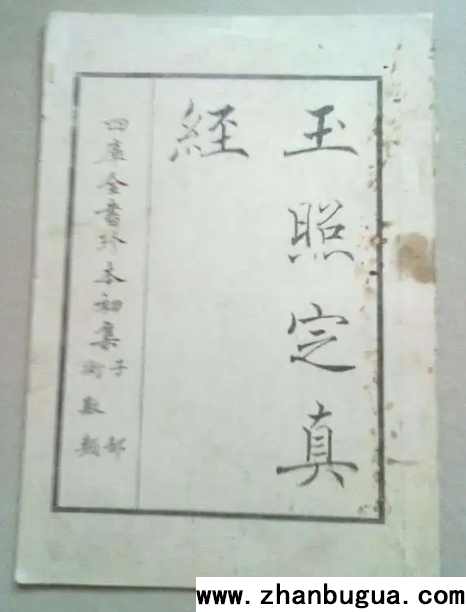 玉照定真
經
四庫全書珍本初集
子部
術數類
www.zhanbugua.com